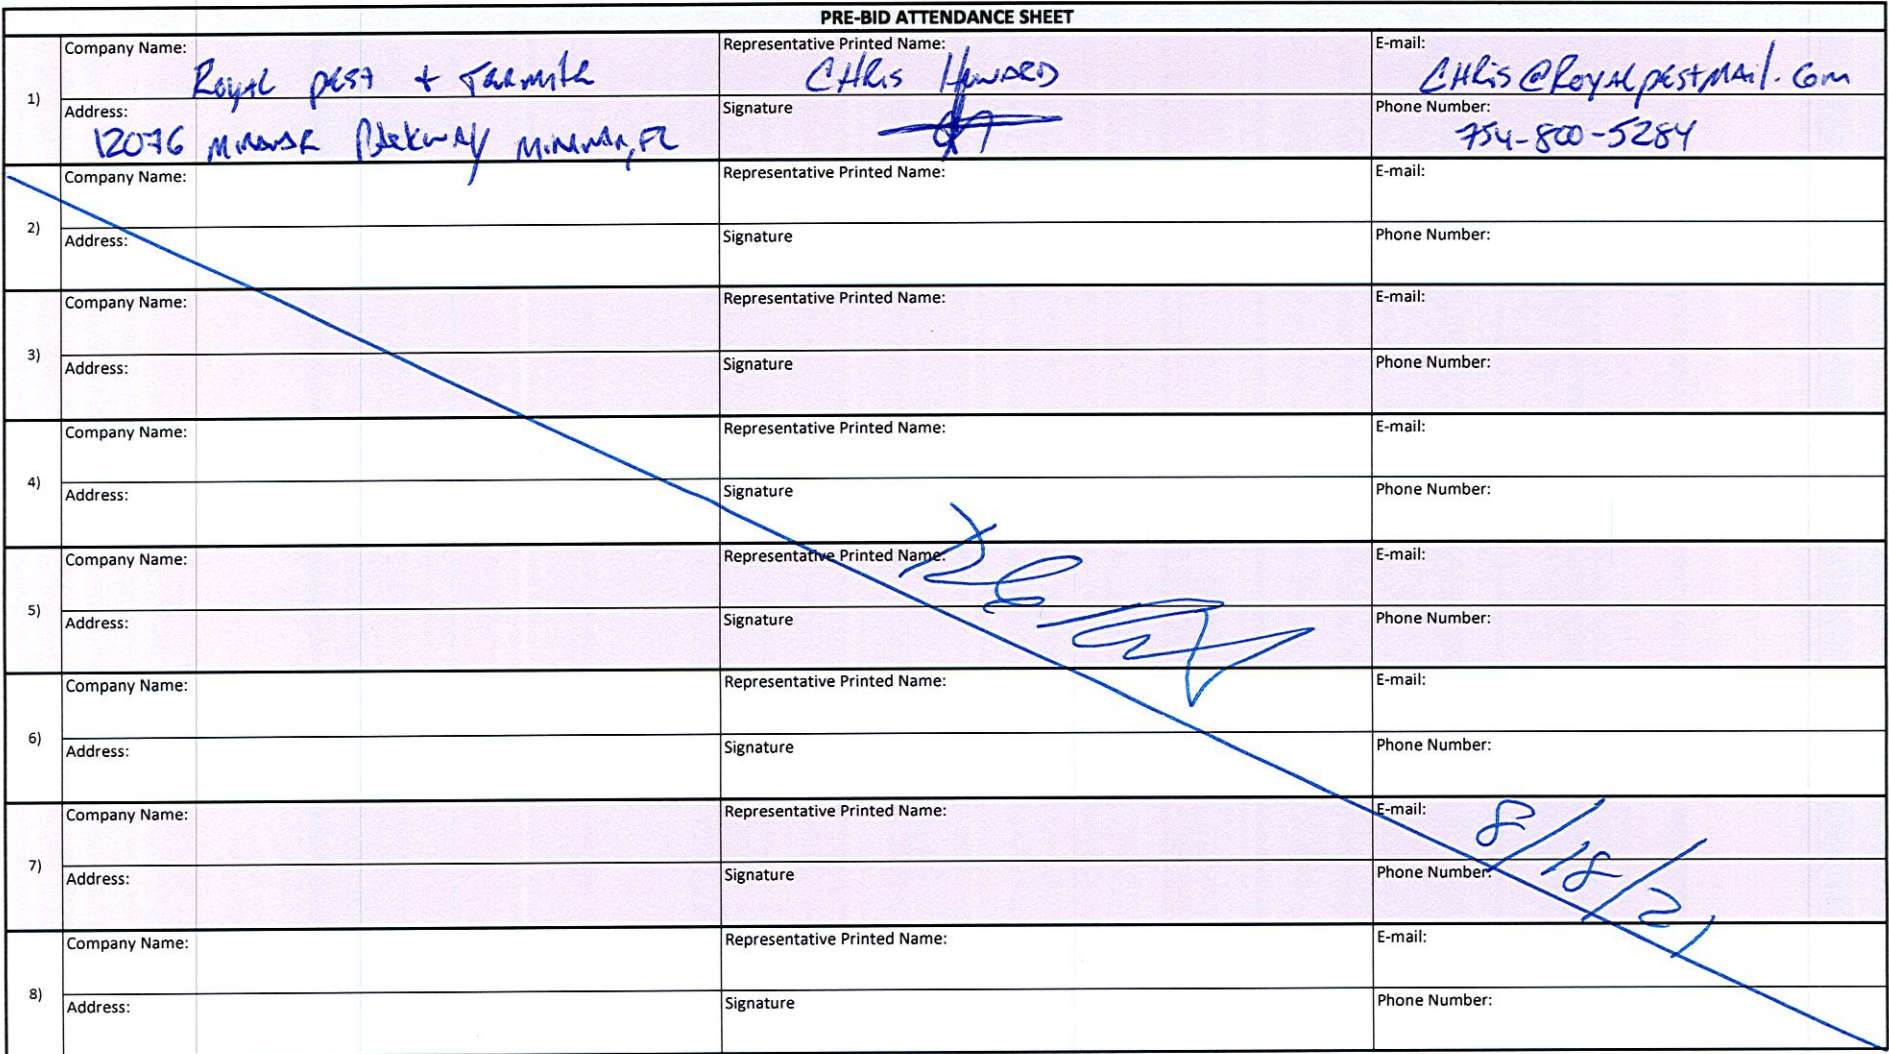 PRE-BID ATTENDANCE SHEET
1)
Company Name: Royal pest + Termite
Representative Printed Name: CHRis HOWARD
E-mail: CHRis@Royalpestmail.com
Address: 12076 MIRAMAR PARKWAY MIRAMAR, FL
Signature
Phone Number: 754-800-5284
2)
Company Name:
Representative Printed Name:
E-mail:
Address:
Signature
Phone Number:
3)
Company Name:
Representative Printed Name:
E-mail:
Address:
Signature
Phone Number:
4)
Company Name:
Representative Printed Name:
E-mail:
Address:
Signature
Phone Number:
5)
Company Name:
Representative Printed Name:
E-mail:
Address:
Signature
Phone Number:
6)
Company Name:
Representative Printed Name:
E-mail:
Address:
Signature
Phone Number:
7)
Company Name:
Representative Printed Name:
E-mail:
8/18/21
Address:
Signature
Phone Number:
8)
Company Name:
Representative Printed Name:
E-mail:
Address:
Signature
Phone Number: